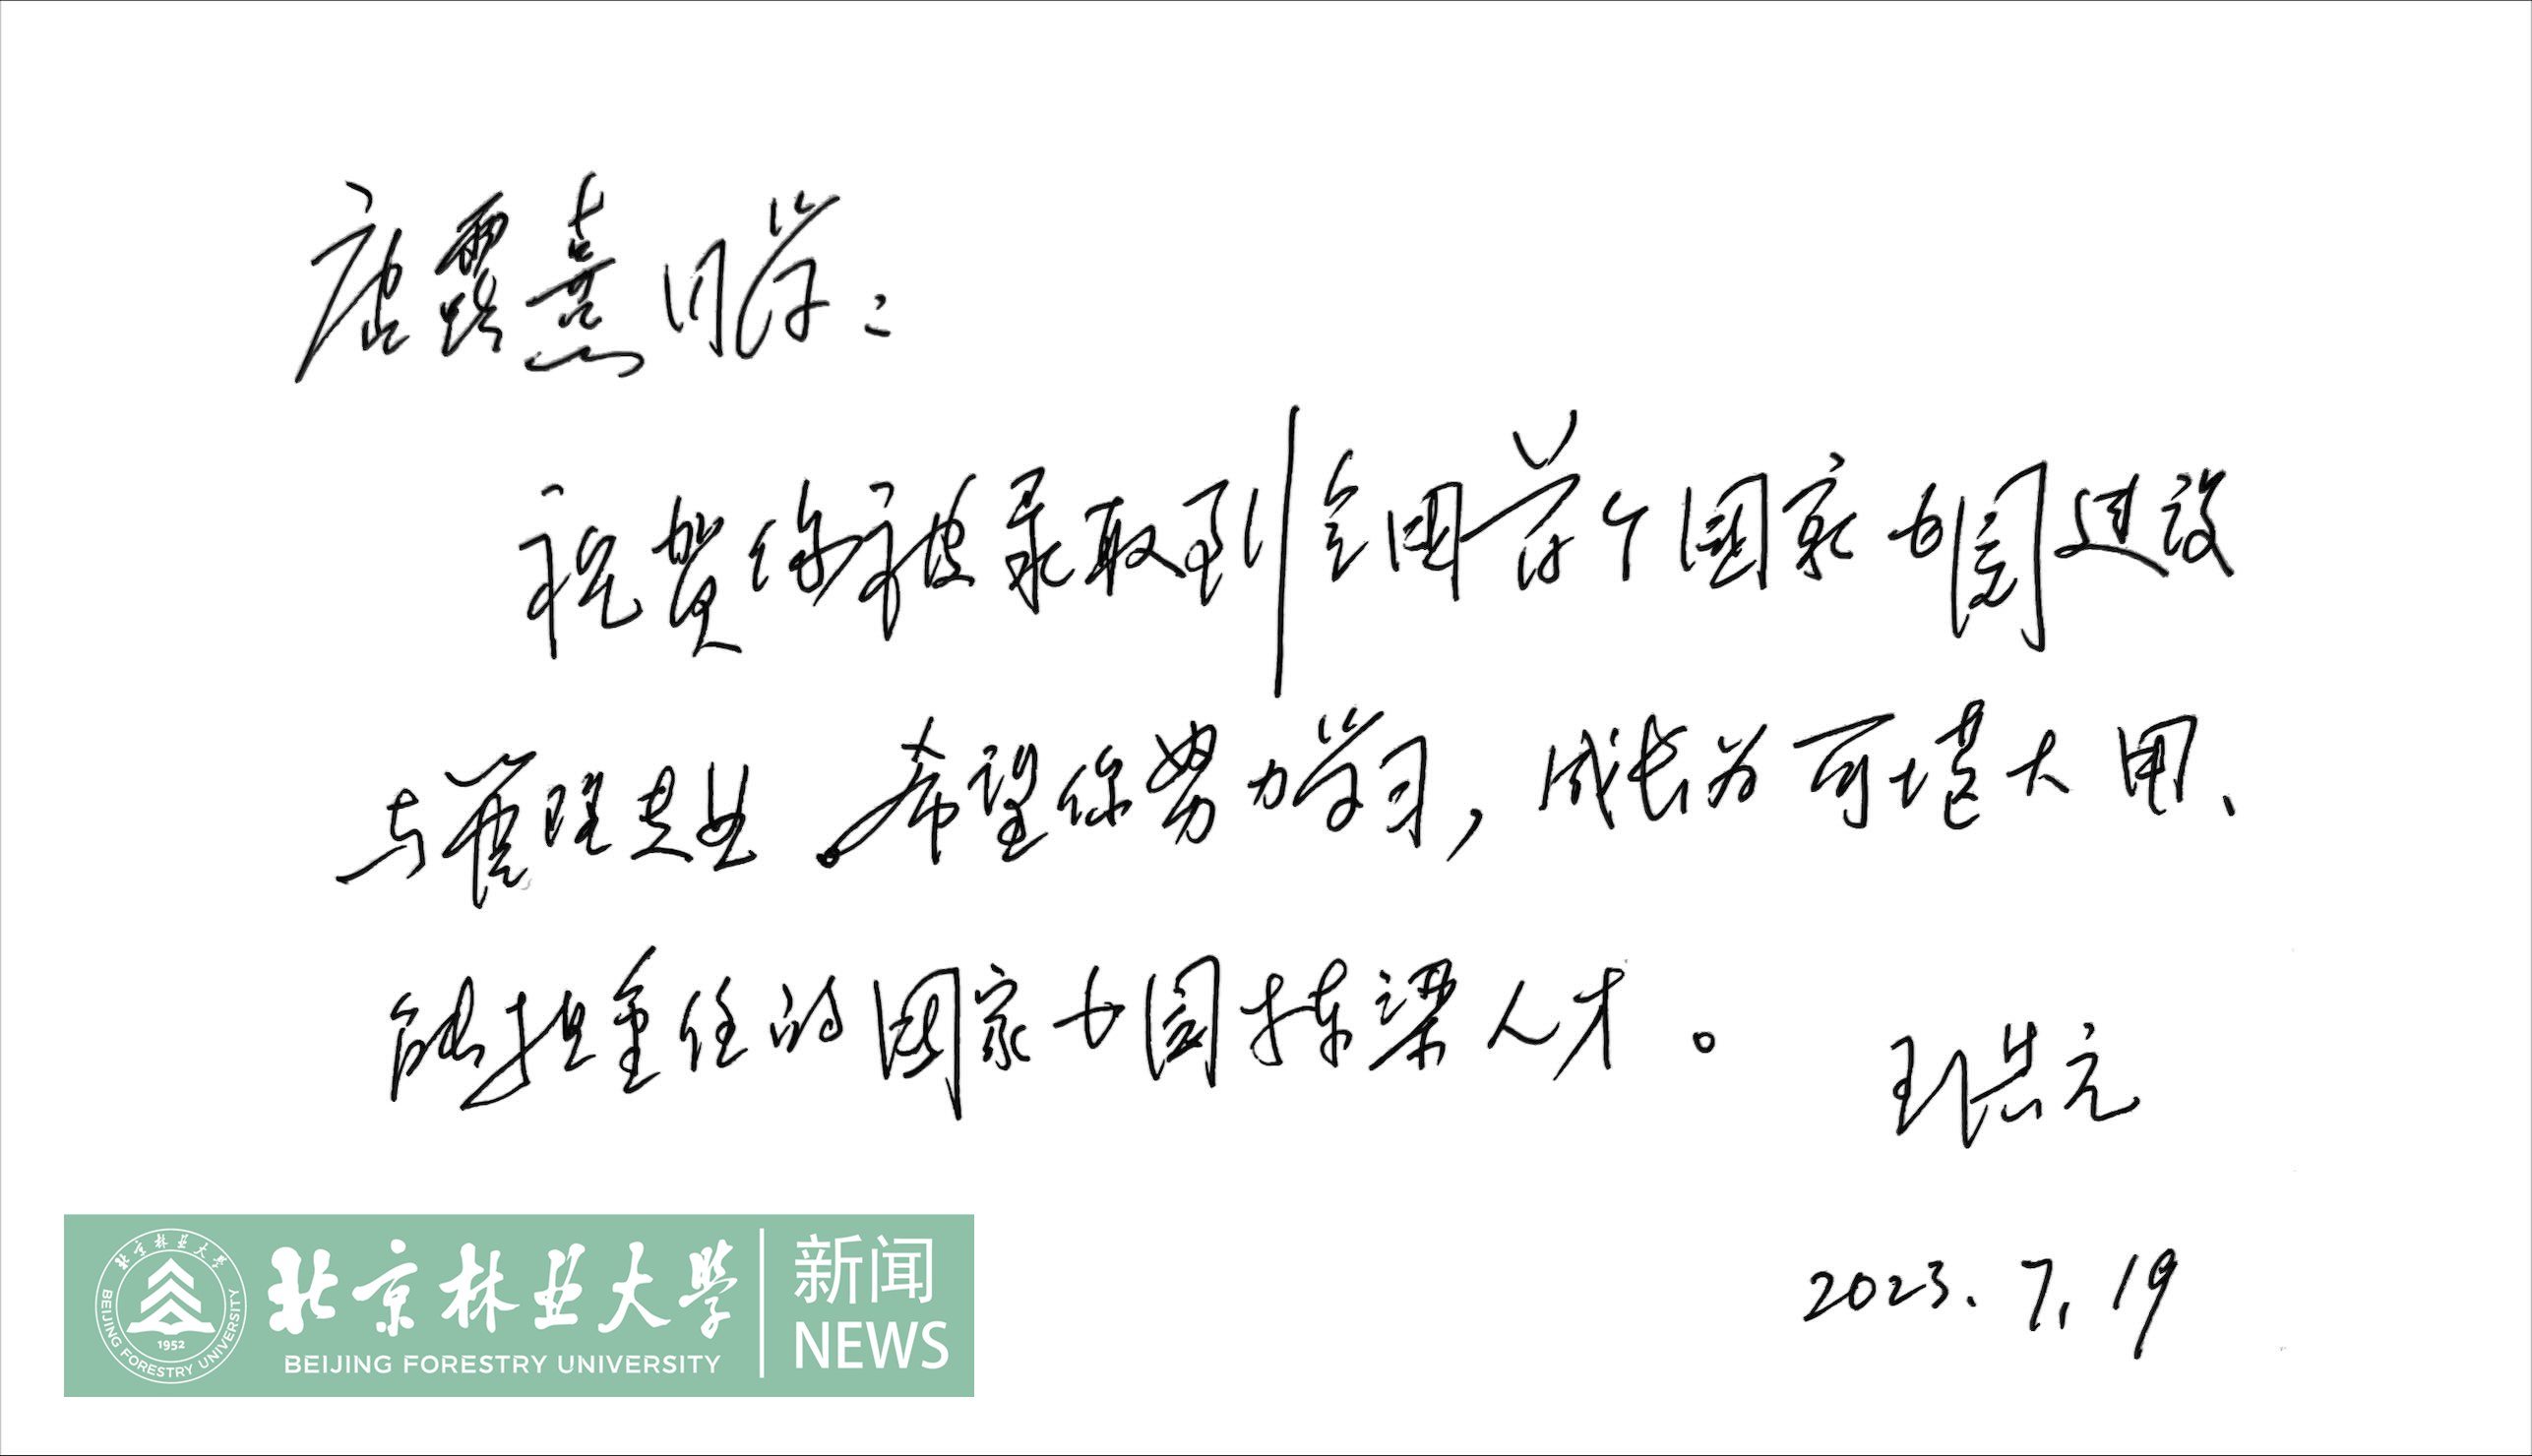 唐露熹同学：
祝贺你被录取到全国首个国家公园建设
与管理专业。希望你努力学习，成长为可堪大用、
能担重任的国家公园栋梁人才。
王洪元
2023.7.19
北京林业大学
新闻
BEIJING FORESTRY UNIVERSITY
NEWS
北京林业大学
1952
BEIJING FORESTRY UNIVERSITY